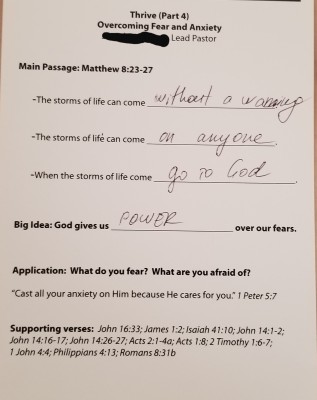 Thrive (Part 4)
Overcoming Fear and Anxiety
Lead Pastor
Main Passage: Matthew 8:23-27
-The storms of life can come without a warning
-The storms of life can come on anyone.
-When the storms of life come go to God.
Big Idea: God gives us POWER over our fears.
Application: What do you fear? What are you afraid of?
"Cast all your anxiety on Him because He cares for you." 1 Peter 5:7
Supporting verses: John 16:33; James 1:2; Isaiah 41:10; John 14:1-2;
John 14:16-17; John 14:26-27; Acts 2:1-4a; Acts 1:8; 2 Timothy 1:6-7;
1 John 4:4; Philippians 4:13; Romans 8:31b